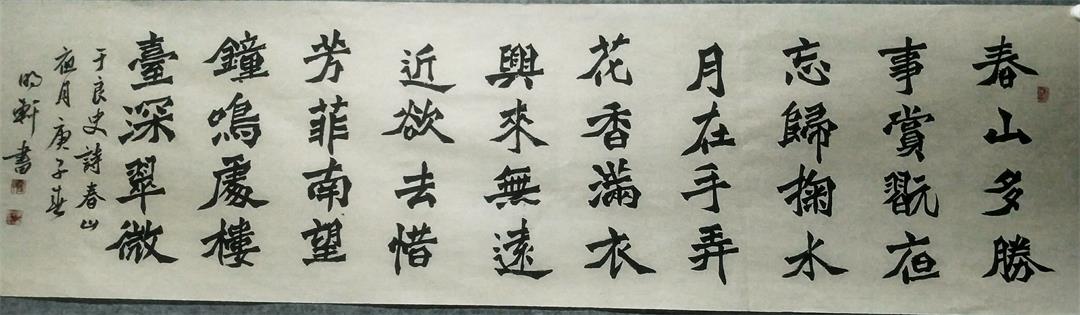 春山多勝
事賞翫夜
忘歸掬水
月在手弄
花香滿衣
興來無遠
近欲去惜
芳菲南望
鐘鳴處樓
臺深翠微
于良史詩春山
夜月庚子春
明軒書